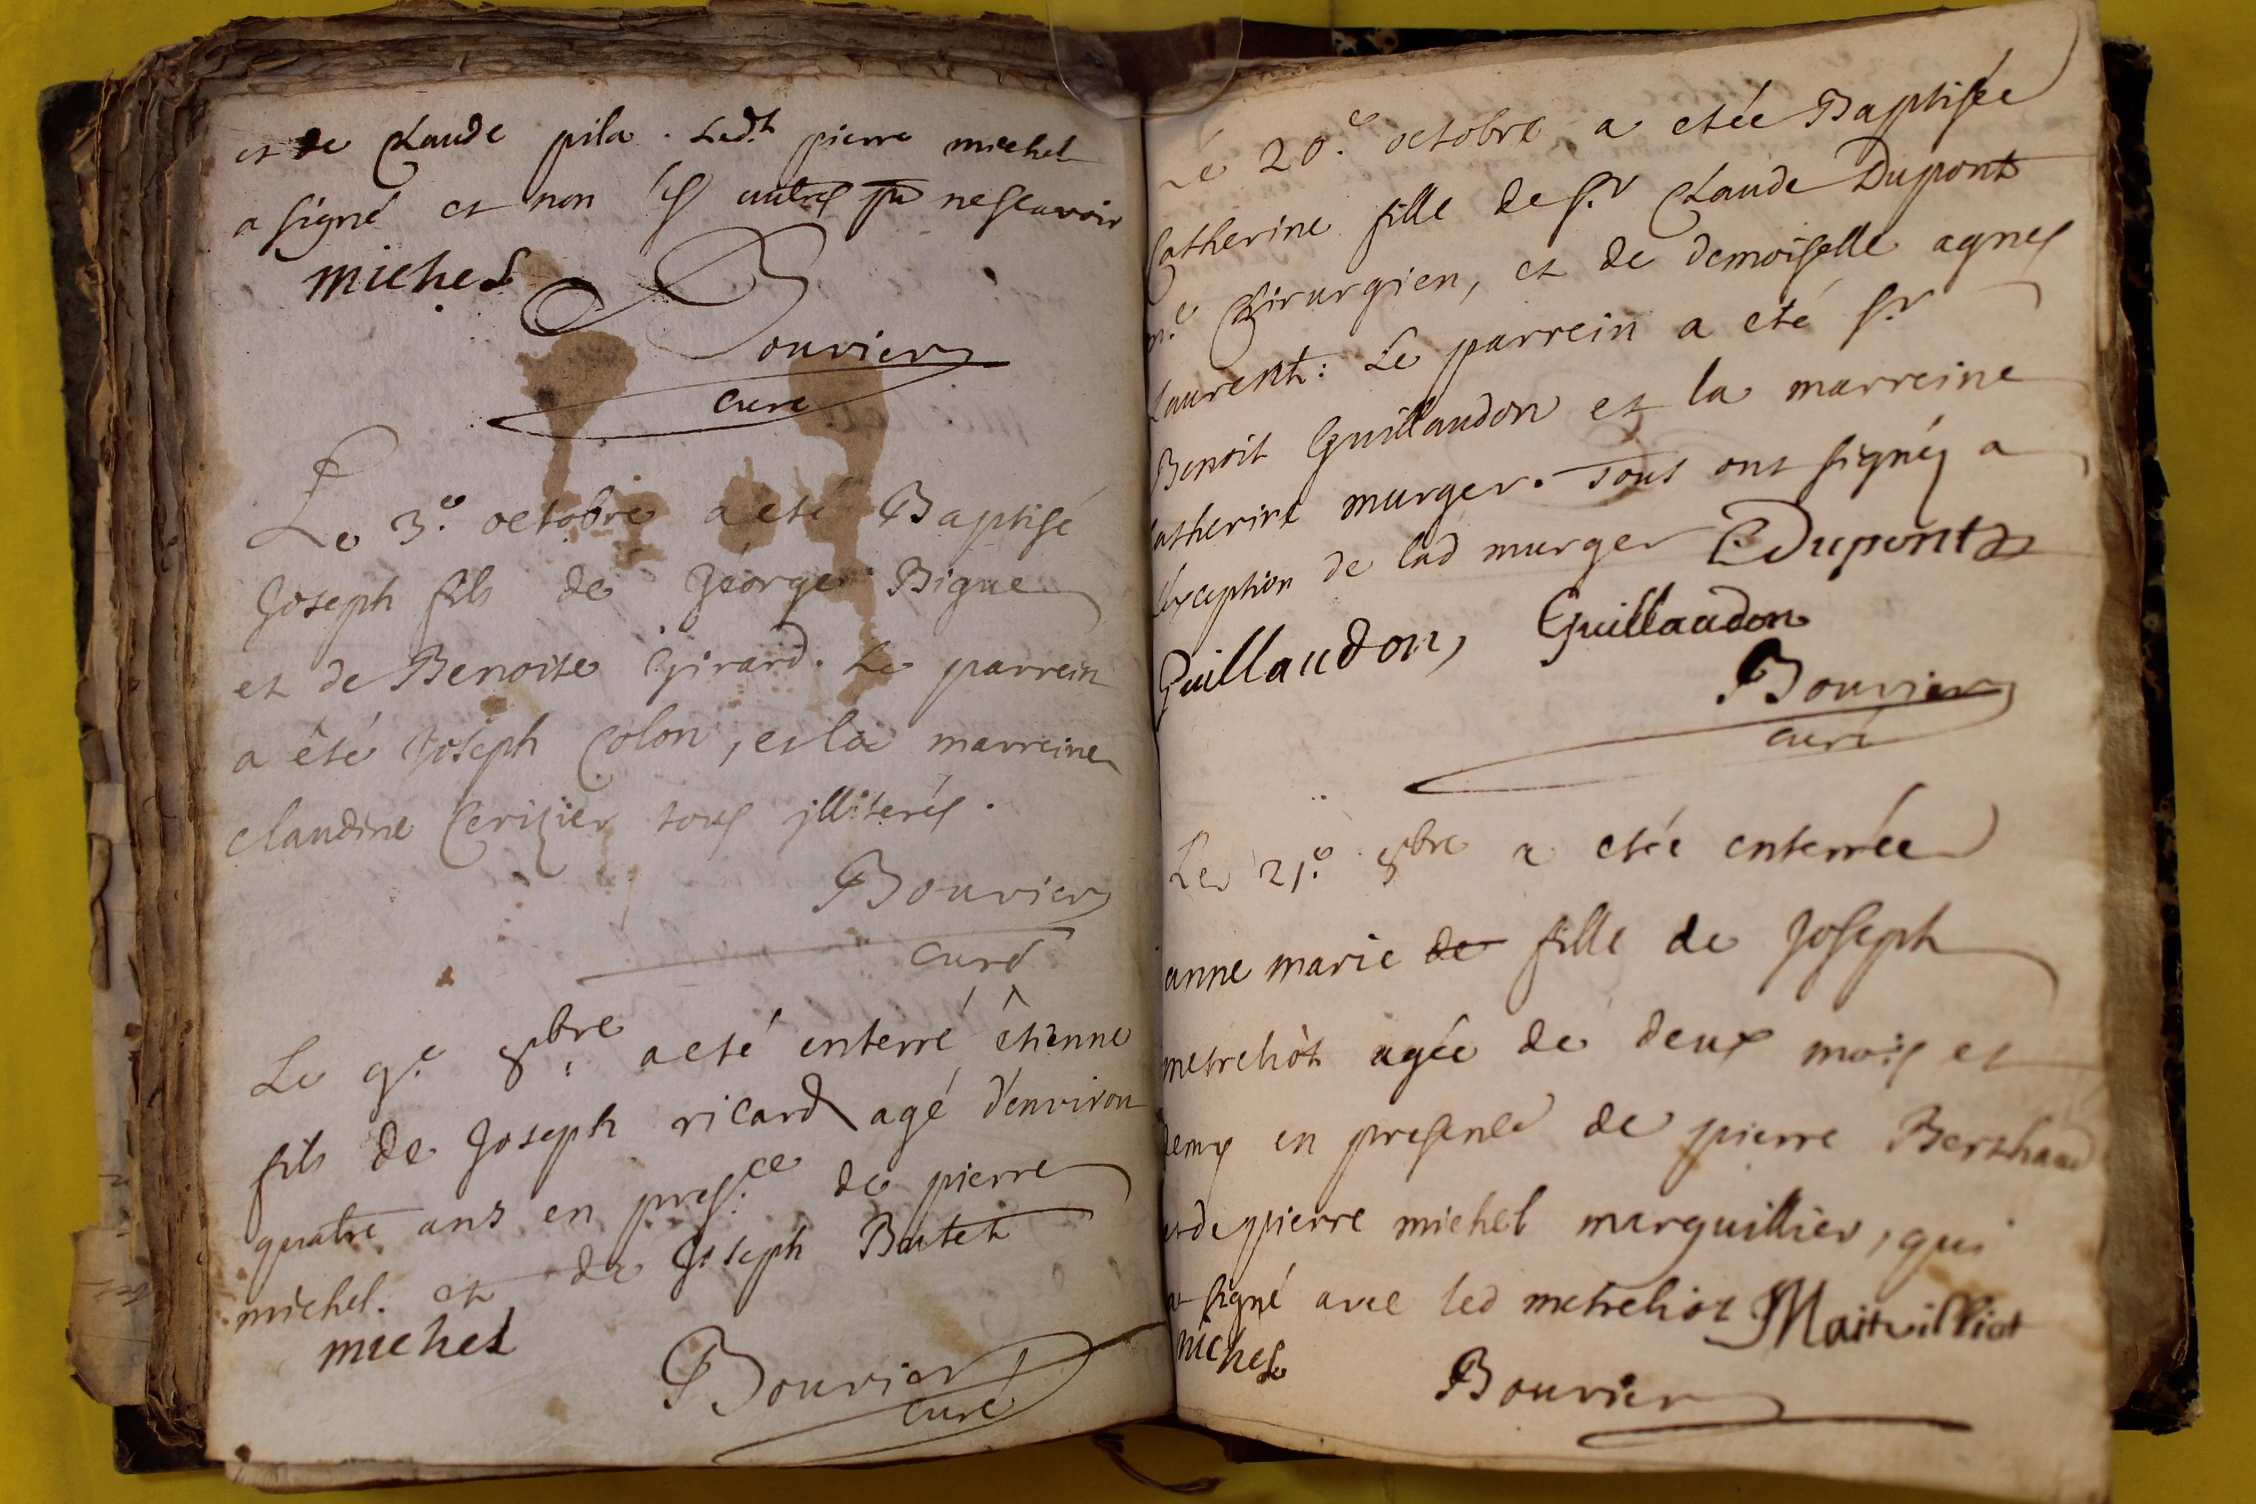 et de Claude pila. Ledt pierre michel
a signé et non les autres pr nescavoir
michel
Bouvier
curé
Le 3e octobre a eté Baptisé
Joseph fils de Jéorge Bigue
et de Benoite Girard. Le parrein
a êté Joseph Colon, et la marreine
claudine Cerizier tous jlliterés.
Bouvier
curé
Le 9e 8bre a eté enterré êtienne
fils de Joseph ricard agé d'environ
quatre ans en presce de pierre
michel. et de Joseph Butet
michel
Bouvier
curé
Le 20e octobre a etée Baptisée
Catherine fille de sr Claude Dupont
me Chirurgien, et de demoiselle agnes
Laurent: Le parrein a eté sr
Benoit Guillaudon et la marreine
Catherine murger. Tous ont signés a
l'exception de lad murger C Dupont
Guillaudon, Guillaudon
Bouvier
curé
Le 21e 8bre a etée enterrée
anne marie de fille de Joseph
metreliòt agée de deux mois et
demy en presence de pierre Berthaud
et de pierre michel marguillier, qui
a signé avec led metreliot Maitrilliot
michel
Bouvier